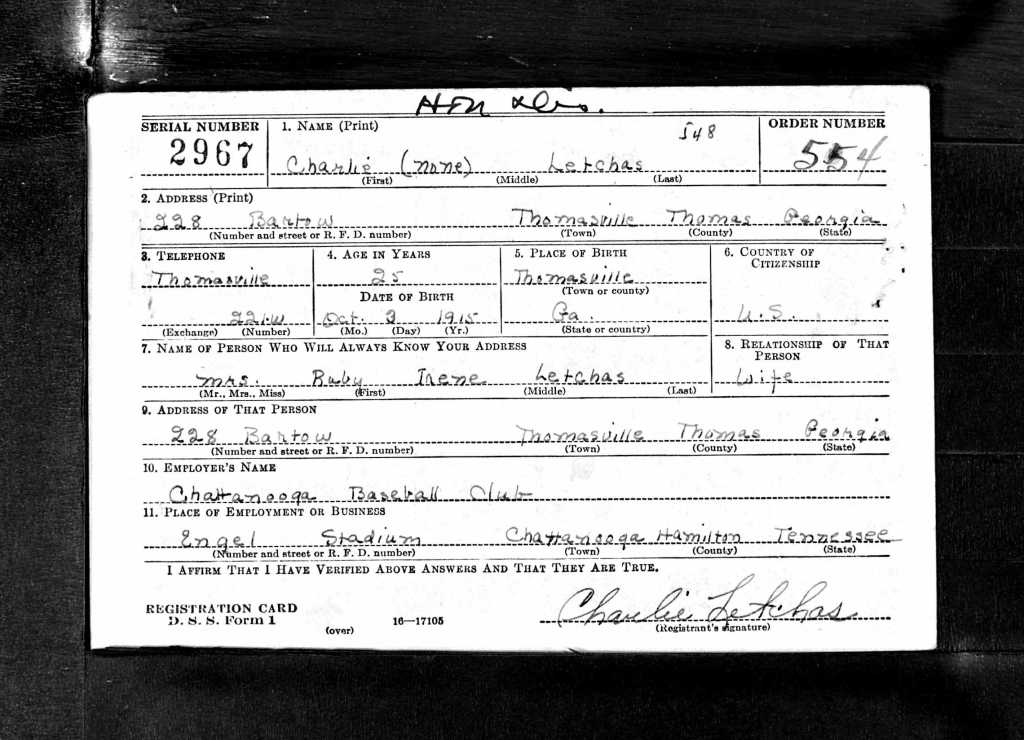 Hon Dis.
SERIAL NUMBER 1. NAME (Print) 548 ORDER NUMBER
2967 Charlie (none) Letchas 554
(First) (Middle) (Last)
2. ADDRESS (Print)
228 Bartow Thomasville Thomas Georgia
(Number and street or R. F. D. number) (Town) (County) (State)
3. TELEPHONE 4. AGE IN YEARS 5. PLACE OF BIRTH 6. COUNTRY OF CITIZENSHIP
Thomasville 25 Thomasville
(Town or county)
DATE OF BIRTH
221-W Oct. 3 1915 Ga. U.S.
(Exchange) (Number) (Mo.) (Day) (Yr.) (State or country)
7. NAME OF PERSON WHO WILL ALWAYS KNOW YOUR ADDRESS 8. RELATIONSHIP OF THAT PERSON
Mrs. Ruby Irene Letchas Wife
(Mr., Mrs., Miss) (First) (Middle) (Last)
9. ADDRESS OF THAT PERSON
228 Bartow Thomasville Thomas Georgia
(Number and street or R. F. D. number) (Town) (County) (State)
10. EMPLOYER'S NAME
Chattanooga Baseball Club
11. PLACE OF EMPLOYMENT OR BUSINESS
Engel Stadium Chattanooga Hamilton Tennessee
(Number and street or R. F. D. number) (Town) (County) (State)
I AFFIRM THAT I HAVE VERIFIED ABOVE ANSWERS AND THAT THEY ARE TRUE.
REGISTRATION CARD
D. S. S. Form 1 16—17105 Charlie Letchas
(over) (Registrant's signature)